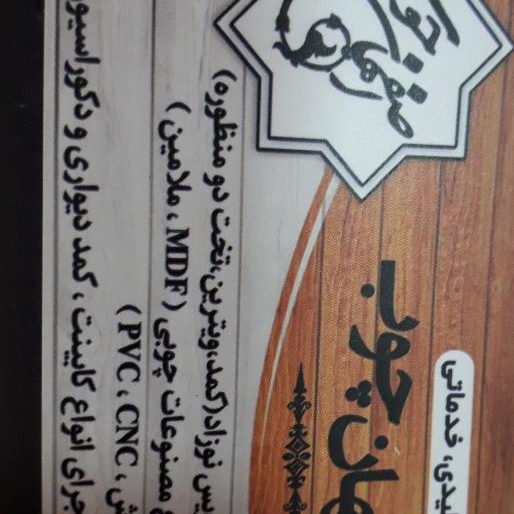 صفهان چوب
لیدی، خدماتی
هان چوب
یس نوزاد(کمد،ویترین،تخت دو منظوره)
ع مصنوعات چوبی (MDF ، ملامین )
ش ، PVC ، CNC )
جرای انواع کابینت ، کمد دیواری و دکوراسیو